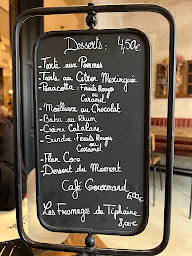 Desserts : 4,50€
- Tarte aux Pommes
- Tarte au Citron Meringuée
- Panacotta : Fruits Rouges
ou
Caramel
- Moelleux au Chocolat
- Baba au Rhum
- Crème Catalane
- Sundae : Fruits Rouges
ou
Caramel
- Flan Coco
- Dessert du Moment
Café Gourmand
6,00€
Les Fromage de Tiphaine
8,00€